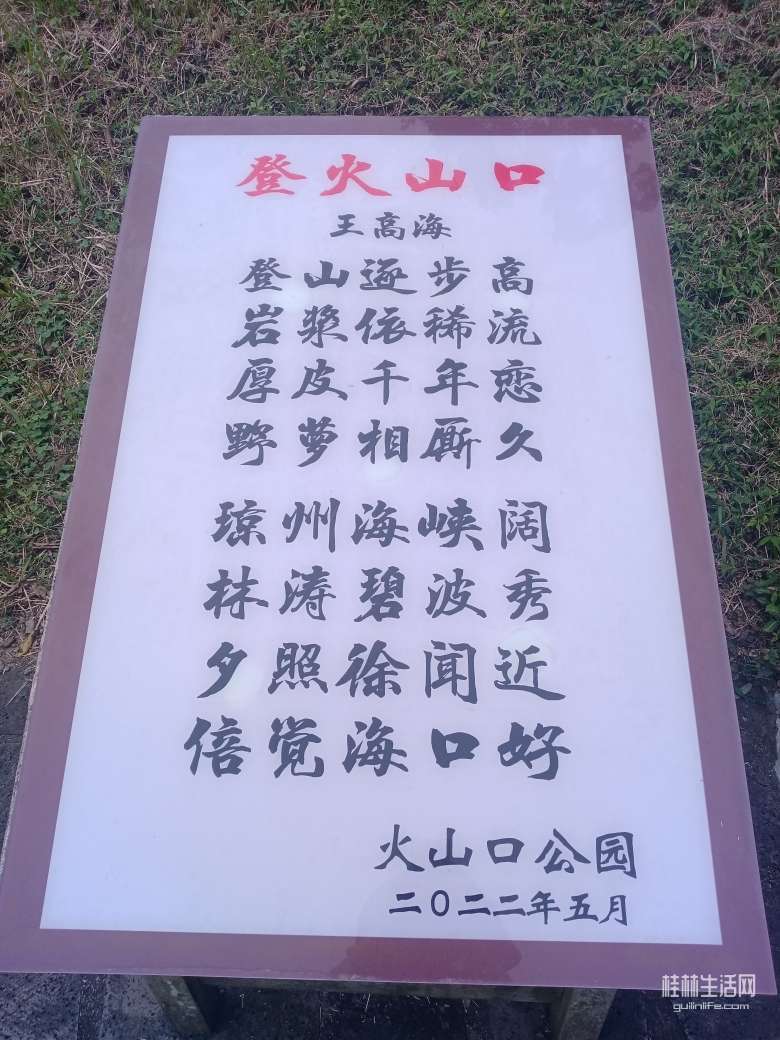 登火山口
王高海
登山逐步高
岩浆依稀流
厚皮千年恋
野萝相厮久
琼州海峡阔
林涛碧波秀
夕照徐闻近
倍觉海口好
火山口公园
二〇二二年五月
桂林生活网
guilinlife.com